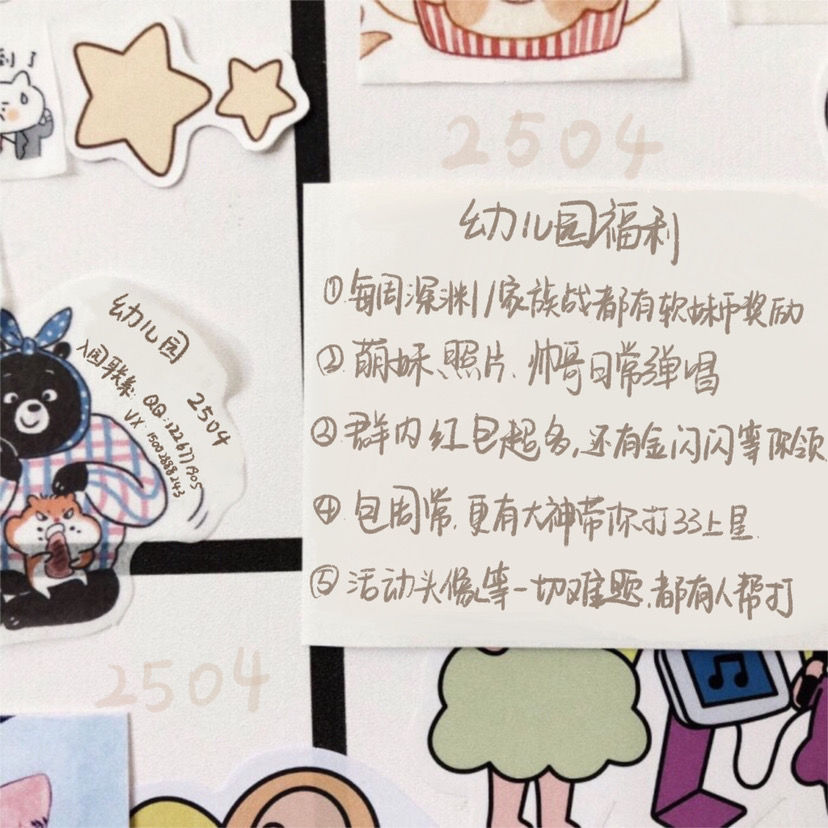 2504
幼儿园福利
①每周深渊/家族战都有软妹币奖励
②萌妹、照片、帅哥日常弹唱
③群内红包超多,还有金闪闪等你领
④包周常,更有大神带你打33上星
⑤活动头像等一切难题,都有人帮打
幼儿园
2504
入园联系:QQ:122677905
VX 15002888243
2504